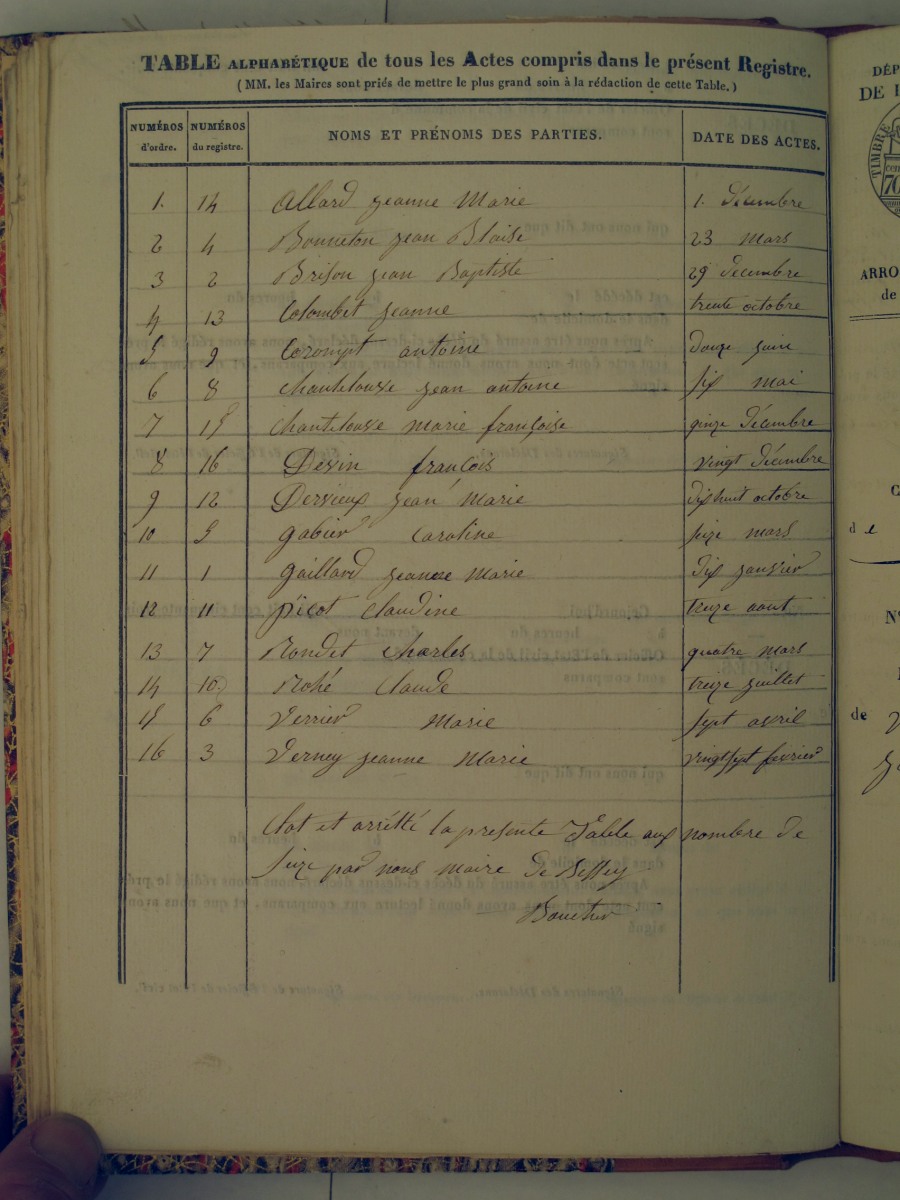 TABLE ALPHABÉTIQUE de tous les Actes compris dans le présent Registre.
( MM. les Maires sont priés de mettre le plus grand soin à la rédaction de cette Table. )
NUMÉROS d'ordre. NUMÉROS du registre. NOMS ET PRÉNOMS DES PARTIES. DATE DES ACTES.
1. 14 Allard jeanne Marie 1. décembre
2 4 Bonneton jean Blaise 23 mars
3 2 Brison jean Baptiste 29 décembre
4 13 Colombet jeanne trente octobre
5 9 Corompt antoine douze juin
6 8 chantelouse jean antoine six mai
7 15 chantelouse marie françoise quinze décembre
8 16 Dervin françois vingt décembre
9 12 Dervieux jean marie dix huit octobre
10 5 gabier Caroline seize mars
11 1 gaillard jeanne Marie dix janvier
12 11 picot claudine treize aout
13 7 Rondet Charles quatre mars
14 10 Rohé Claude treize juillet
15 6 Verrier Marie sept avril
16 3 Verney jeanne Marie vingt sept février
Clot et arrétté la presente Table aux nombre de
seize par nous maire de Bessey
Boucher
DÉP
DE L
TIMBRE
cen
70
ARRO
de
C
de
N°
de